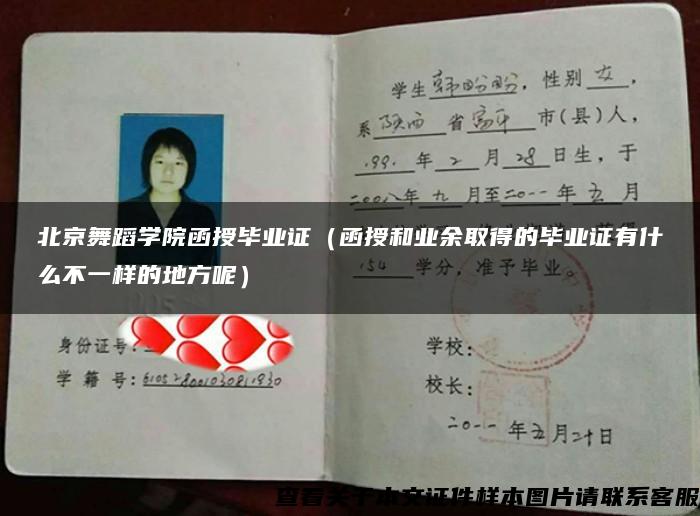 学生韩盼盼，性别女，
系陕西省富平市(县)人，
1991年2月28日生，于
二00八年九月至二0一一年五月
北京舞蹈学院函授毕业证（函授和业余取得的毕业证有什
么不一样的地方呢）
154学分，准予毕业。
身份证号：
学籍号：610528001030811930
学校：
校长：
二0一一年五月二十日
查看关于本文证件样本图片请联系客服